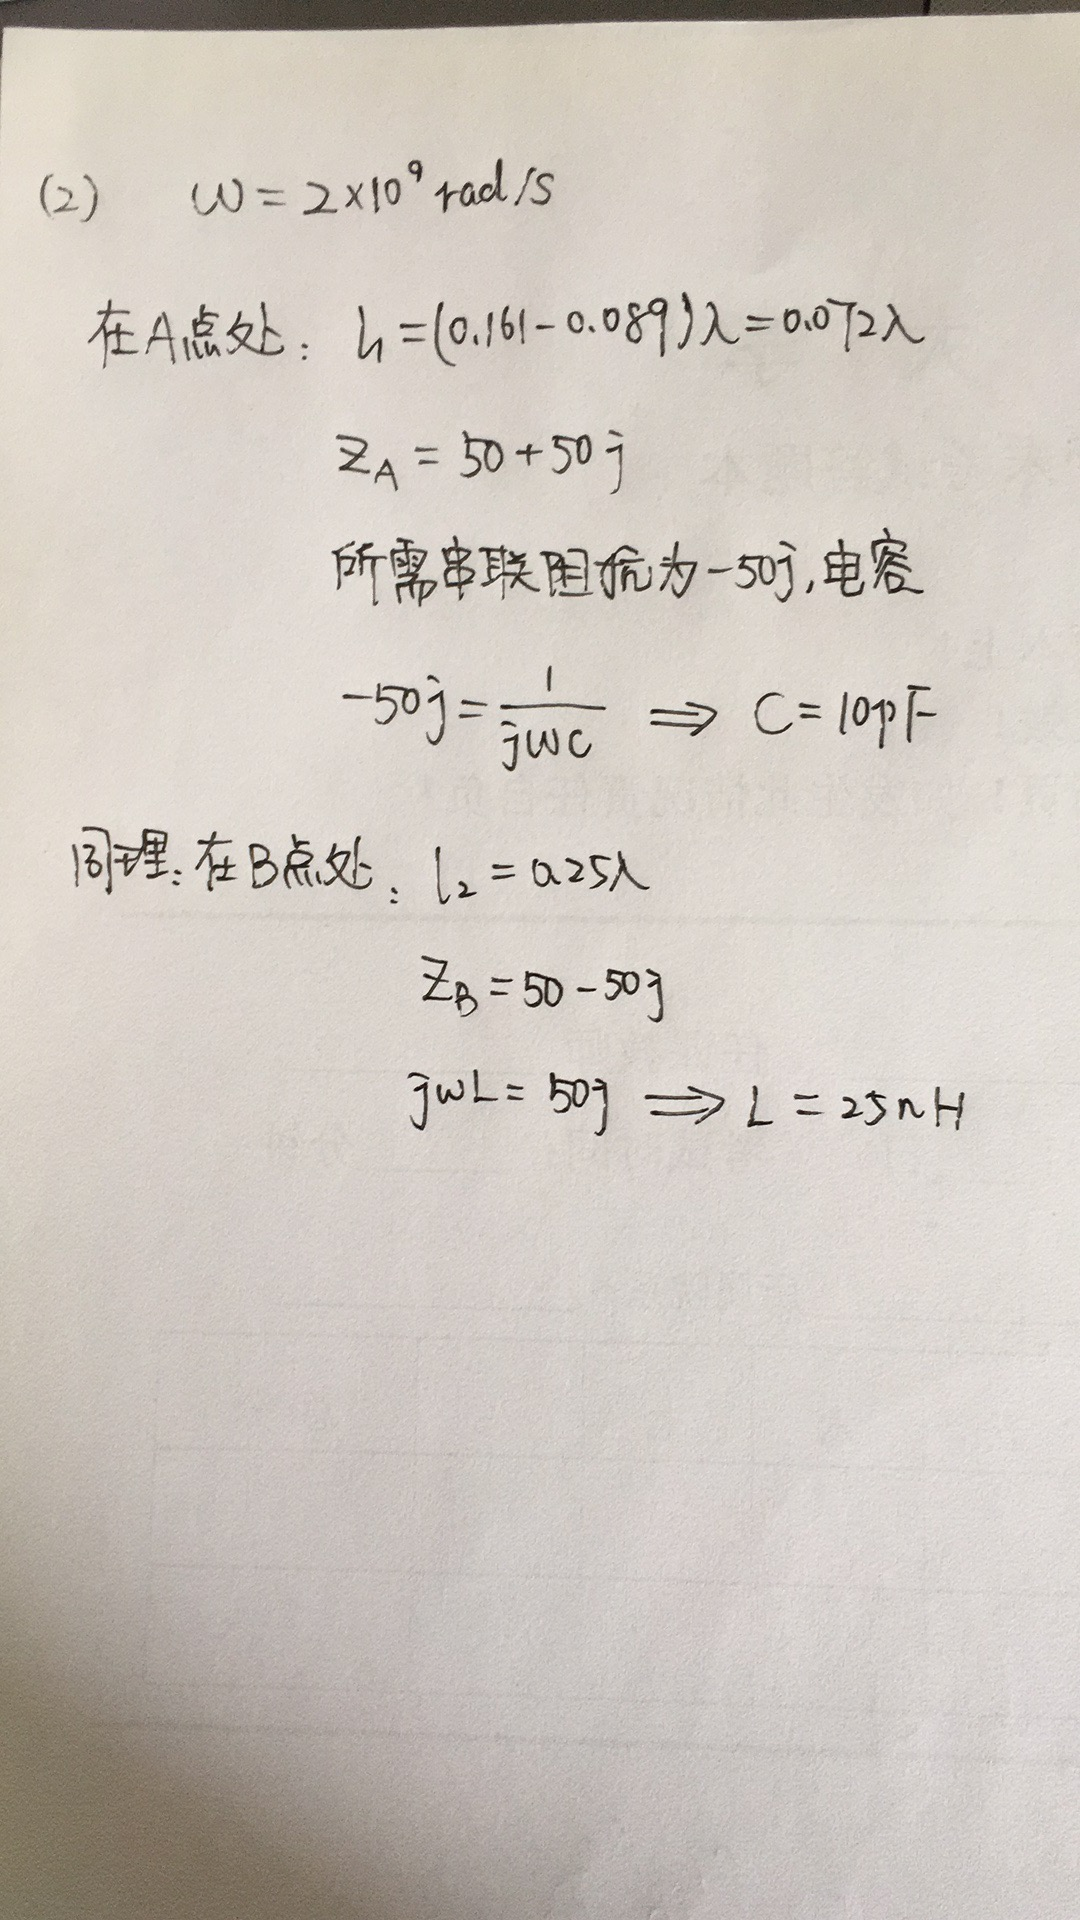 (2) ω = 2×10⁹ rad/s
在A点处: l₁ = (0.161 - 0.089)λ = 0.072λ
Z_A = 50 + 50j
所需串联阻抗为 -50j, 电容
-50j = 1/(jωC) ⇒ C = 10pF
同理: 在B点处: l₂ = 0.25λ
Z_B = 50 - 50j
jωL = 50j ⇒ L = 25nH